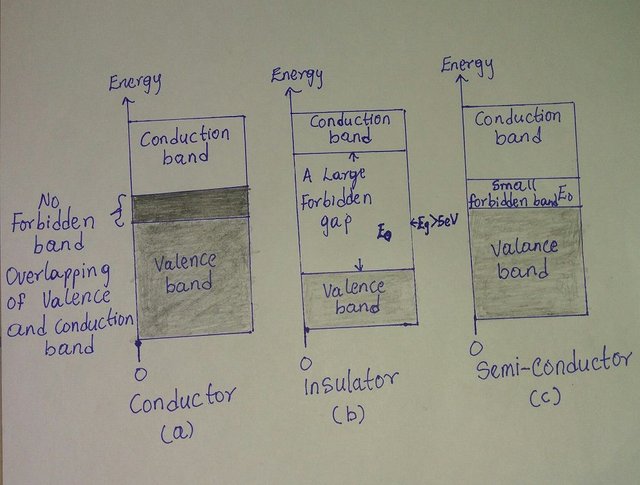 Energy
Conduction
band
No
Forbidden
band
Overlapping
of Valence
and conduction
band
Valence
band
O
Conductor
(a)
Energy
Conduction
band
A Large
Forbidden
gap
Eg>5eV
Valence
band
O
Insulator
(b)
Energy
Conduction
band
Small
forbidden band
Valance
band
O
Semi-Conductor
(c)